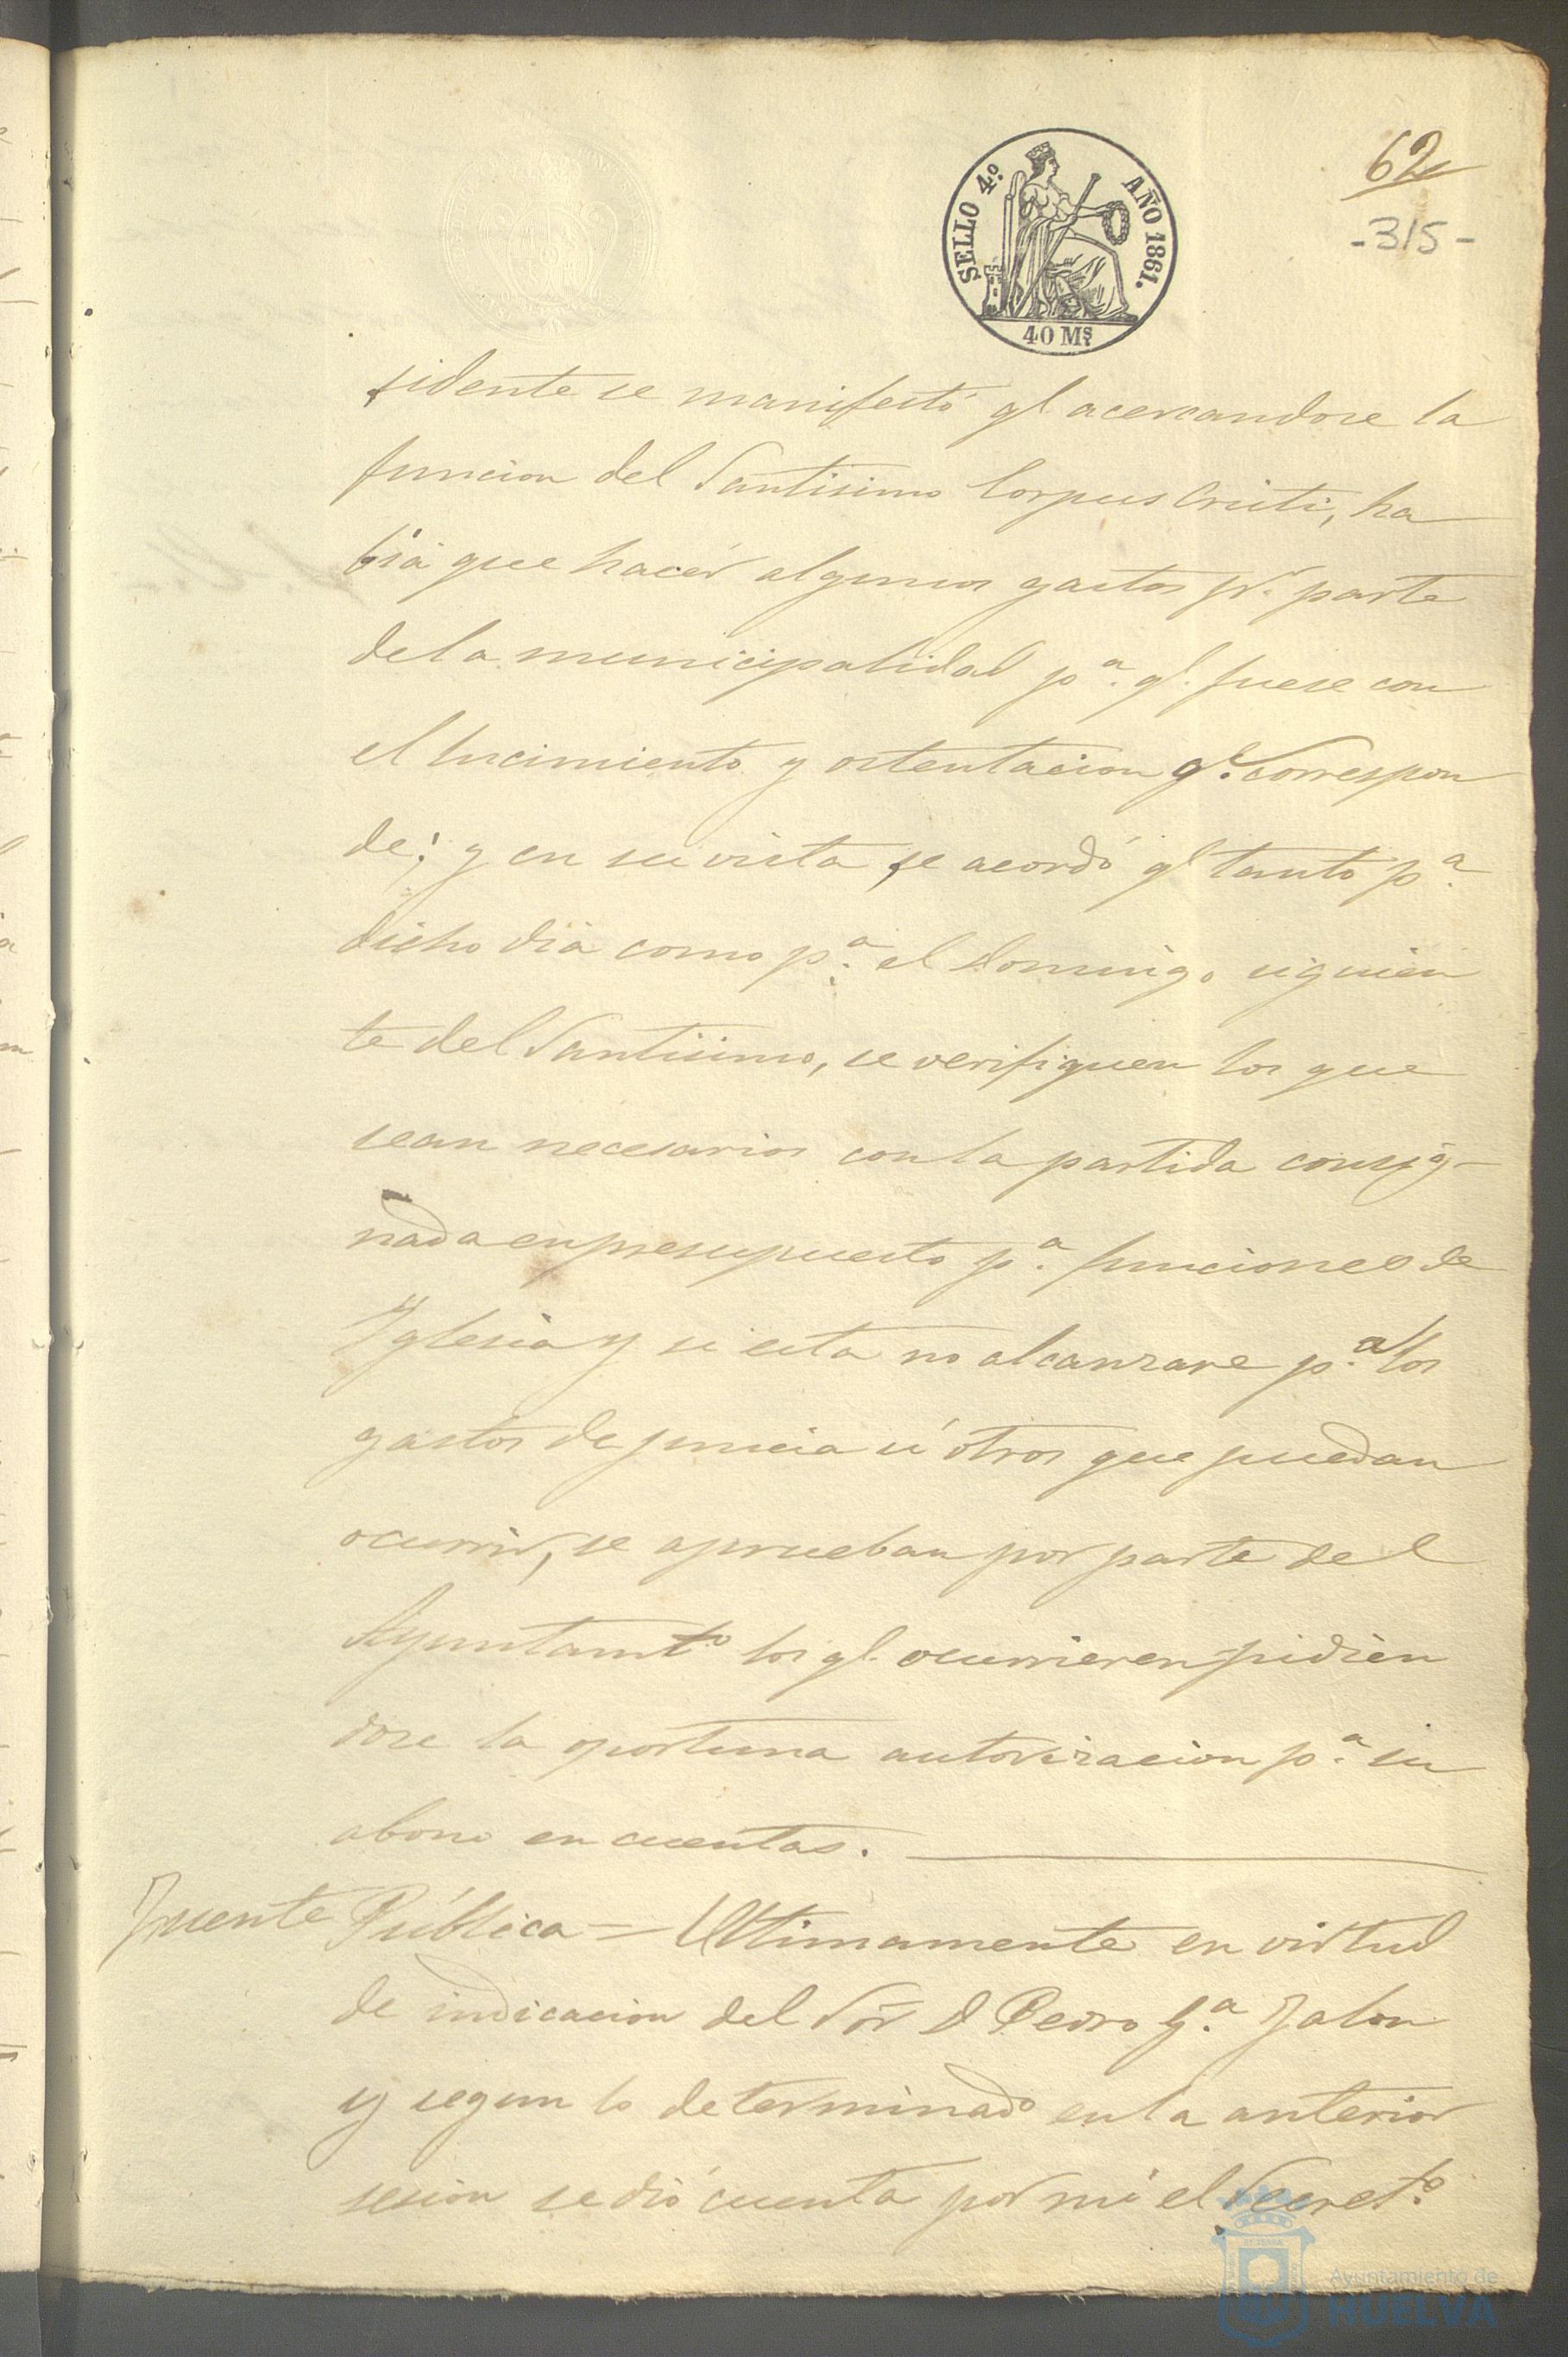 62
-315-
SELLO 4.º AÑO 1861.
40 Ms.
sidente se manifestó q.e acercandose la
funcion del Santisimo Corpus Cristi, ha
bia que hacer algunos gastos p.r parte
de la municipalidad p.a q.e fuese con
el lucimiento y ostentacion q.e correspon
de; y en su vista se acordó q.e tanto p.a
dicho dia como p.a el domingo siguien
te del Santisimo, se verifiquen los que
sean necesarios con la partida consig-
nada en presupuesto p.a funciones de
Yglesia y si esta no alcanzare p.a los
gastos de juncia ú otros que puedan
ocurrir, se aprueban por parte del
Ayuntamto los q.e ocurrieren pidien
dose la oportuna autorizacion p.a su
abono en cuentas.
Fuente Pública = Ultimamente en virtud
de indicacion del Sor D Pedro G.a Jalon
y segun lo determinado en la anterior
sesion se dió cuenta por mi el Secret.o
Ayuntamiento de
HUELVA